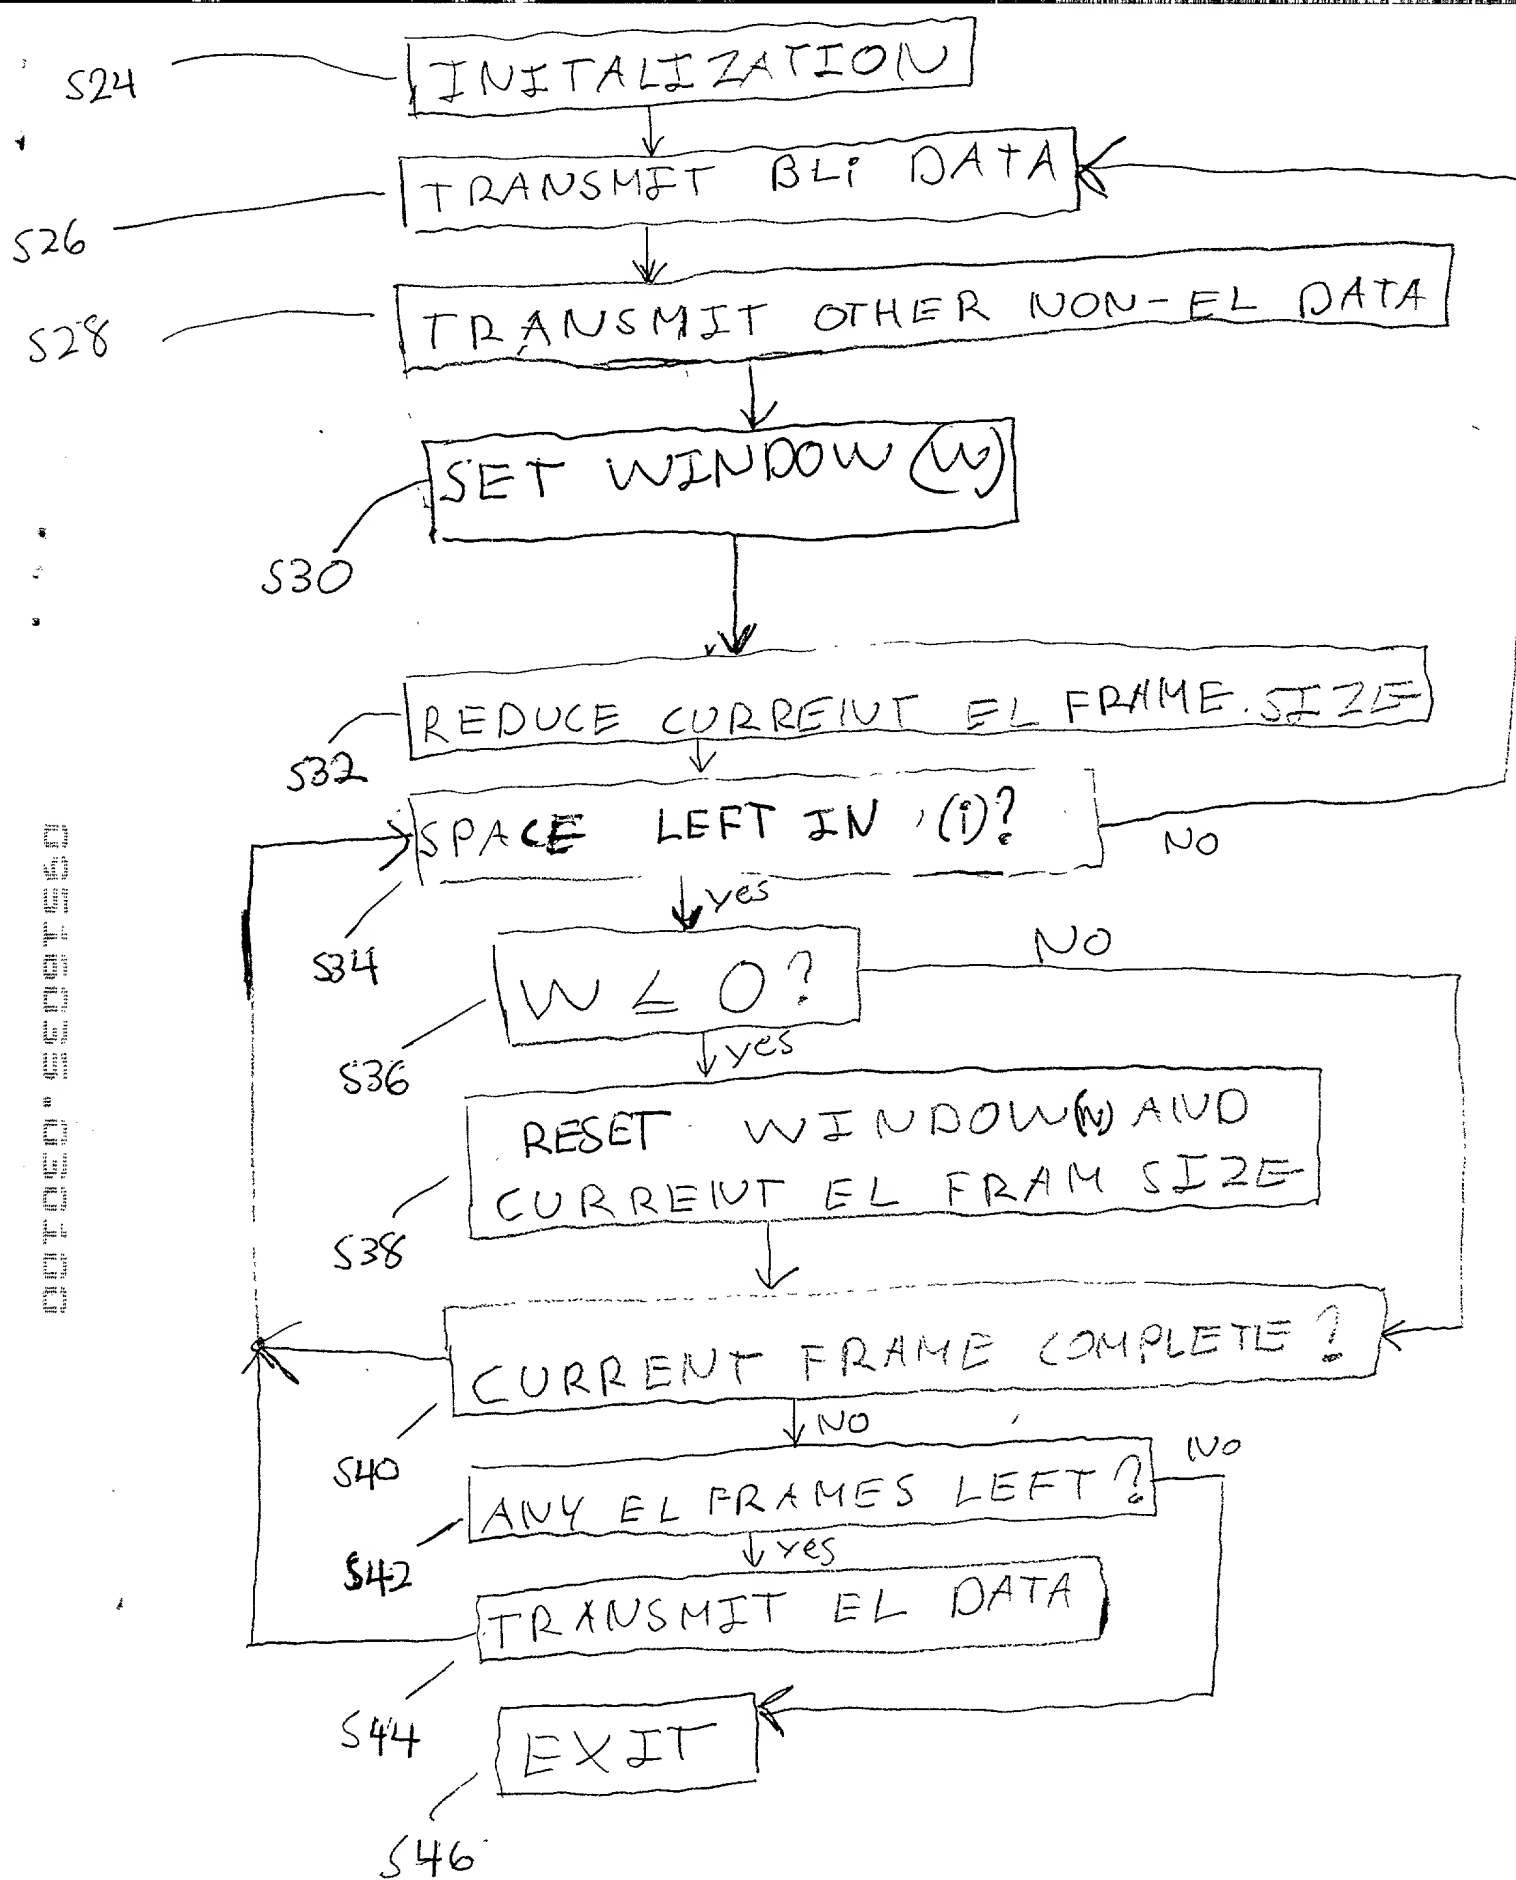 S24
INITALIZATION
S26
TRANSMIT BLi DATA
S28
TRANSMIT OTHER NON-EL DATA
S30
SET WINDOW (W)
S32
REDUCE CURRENT EL FRAME SIZE
S34
SPACE LEFT IN (i)?
NO
yes
S36
W ≤ 0?
NO
yes
S38
RESET WINDOW(W) AND
CURRENT EL FRAM SIZE
S40
CURRENT FRAME COMPLETE?
NO
S42
ANY EL FRAMES LEFT?
NO
yes
S44
TRANSMIT EL DATA
S46
EXIT